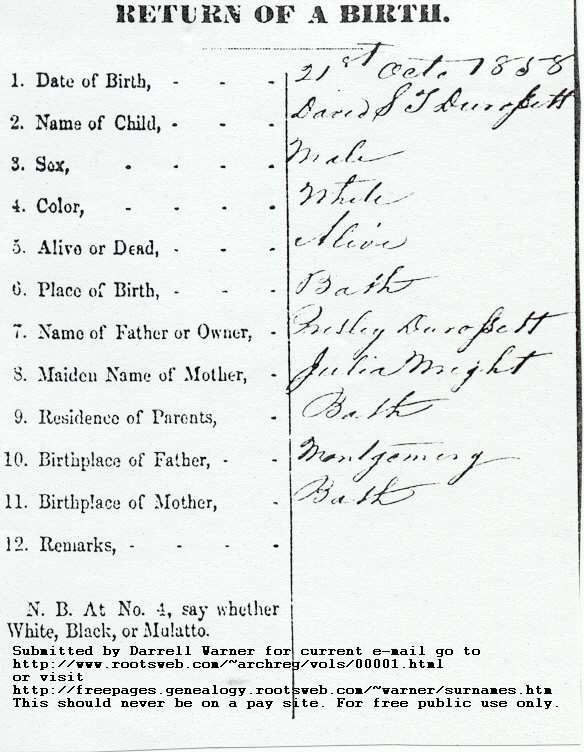 RETURN OF A BIRTH.
1. Date of Birth, - - - 21st Oct. 1858
2. Name of Child, - - - David S T Durossett
3. Sex, - - - - Male
4. Color, - - - - White
5. Alive or Dead, - - - Alive
6. Place of Birth, - - - Bath
7. Name of Father or Owner, - Durossett
8. Maiden Name of Mother, - Julia Wright
9. Residence of Parents, - Bath
10. Birthplace of Father, - - Montgomery
11. Birthplace of Mother, - Bath
12. Remarks, - - - -
N. B. At No. 4, say whether
White, Black, or Mulatto.
Submitted by Darrell Warner for current e-mail go to
http://www.rootsweb.com/~archreg/vols/00001.html
or visit
http://freepages.genealogy.rootsweb.com/~warner/surnames.htm
This should never be on a pay site. For free public use only.